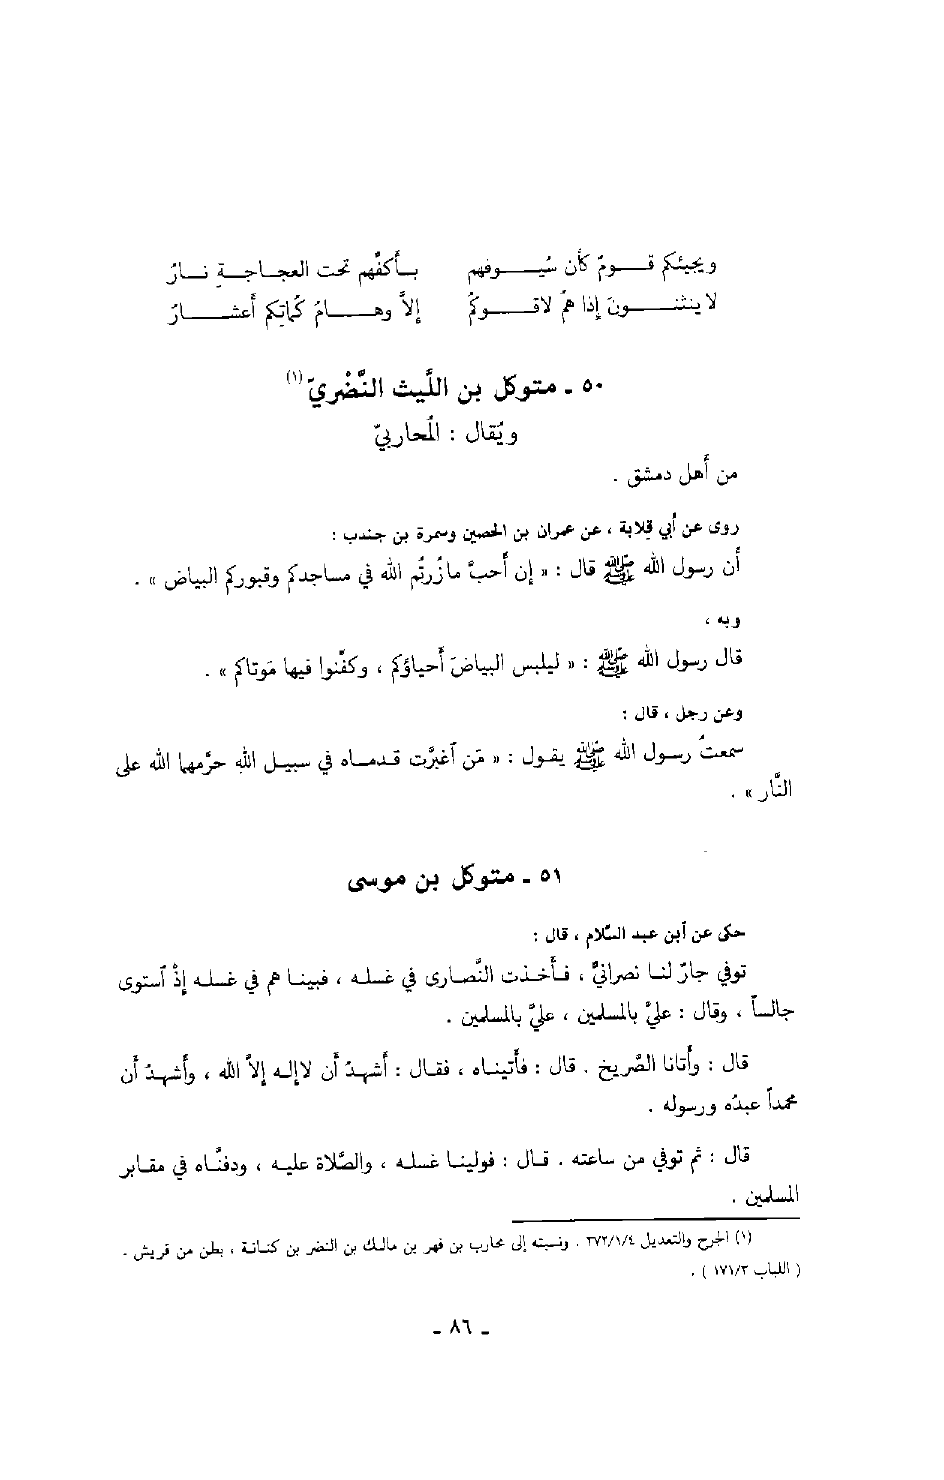 ويجيئكم قـــومٌ كأن سُيـــوفهم بـأكفِّهم تحت العجـاجـةِ نـارُ
لا ينثنـــونَ إذا همُ لاقـــوكمُ إلاَّ وهـــامُ كُماتِكم أعشـــارُ
٥٠ ـ متوكل بن اللَّيث النَّضْريّ(١)
ويُقال : المُحاربيّ
من أهل دمشق .
روى عن أبي قِلابة ، عن عمران بن الحصين وسمرة بن جندب :
أن رسول الله ﷺ قال : « إن أحبَّ مازُرتُم الله في مساجدكم وقبوركم البياض » .
وبه ،
قال رسول الله ﷺ : « ليلبس البياضَ أحياؤكم ، وكفِّنوا فيها مَوتاكم » .
وعن رجل ، قال :
سمعتُ رسول الله ﷺ يقول : « مَن ٱغبرَّت قدماه في سبيل اللهِ حرَّمها الله على
النَّار » .
٥١ ـ متوكل بن موسى
حكى عن ٱبن عبد السَّلام ، قال :
توفي جارٌ لنا نصرانيٌّ ، فأخذت النَّصارى في غسله ، فبينا هم في غسله إذْ ٱستوى
جالساً ، وقال : عليَّ بالمسلمين ، عليَّ بالمسلمين .
قال : وأتانا الصَّريخ . قال : فأتيناه ، فقال : أشهدُ أن لاإله إلاَّ الله ، وأشهدُ أن
محمداً عبدُه ورسوله .
قال : ثم توفي من ساعته . قال : فولينا غسله ، والصَّلاة عليه ، ودفنَّاه في مقابر
المسلمين .
(١) الجرح والتعديل ٣٧٢/١/٤ . ونسبته إلى محارب بن فهر بن مالك بن النضر بن كنانة ، بطن من قريش .
( اللباب ١٧١/٣ ) .
ـ ٨٦ ـ